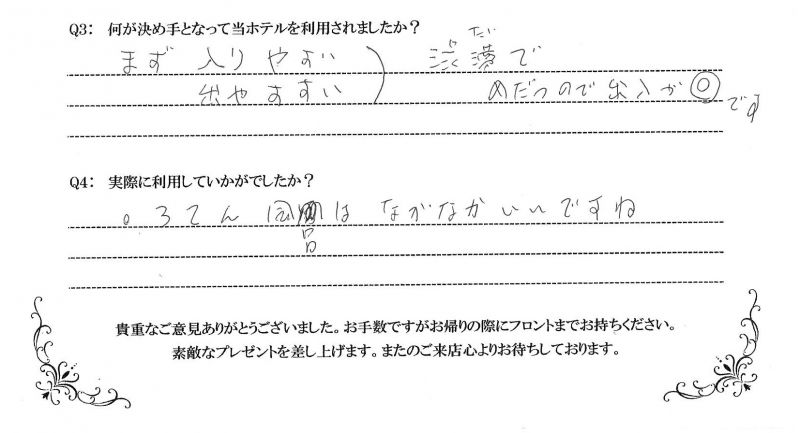 Q3: 何が決め手となって当ホテルを利用されましたか？
まず 入りやすい ) 渋滞で
じゅ たい
出やすすい めだつので出入が◎
です
Q4: 実際に利用していかがでしたか？
。ろてん は なかなかいいですね
貴重なご意見ありがとうございました。お手数ですがお帰りの際にフロントまでお持ちください。
素敵なプレゼントを差し上げます。またのご来店心よりお待ちしております。